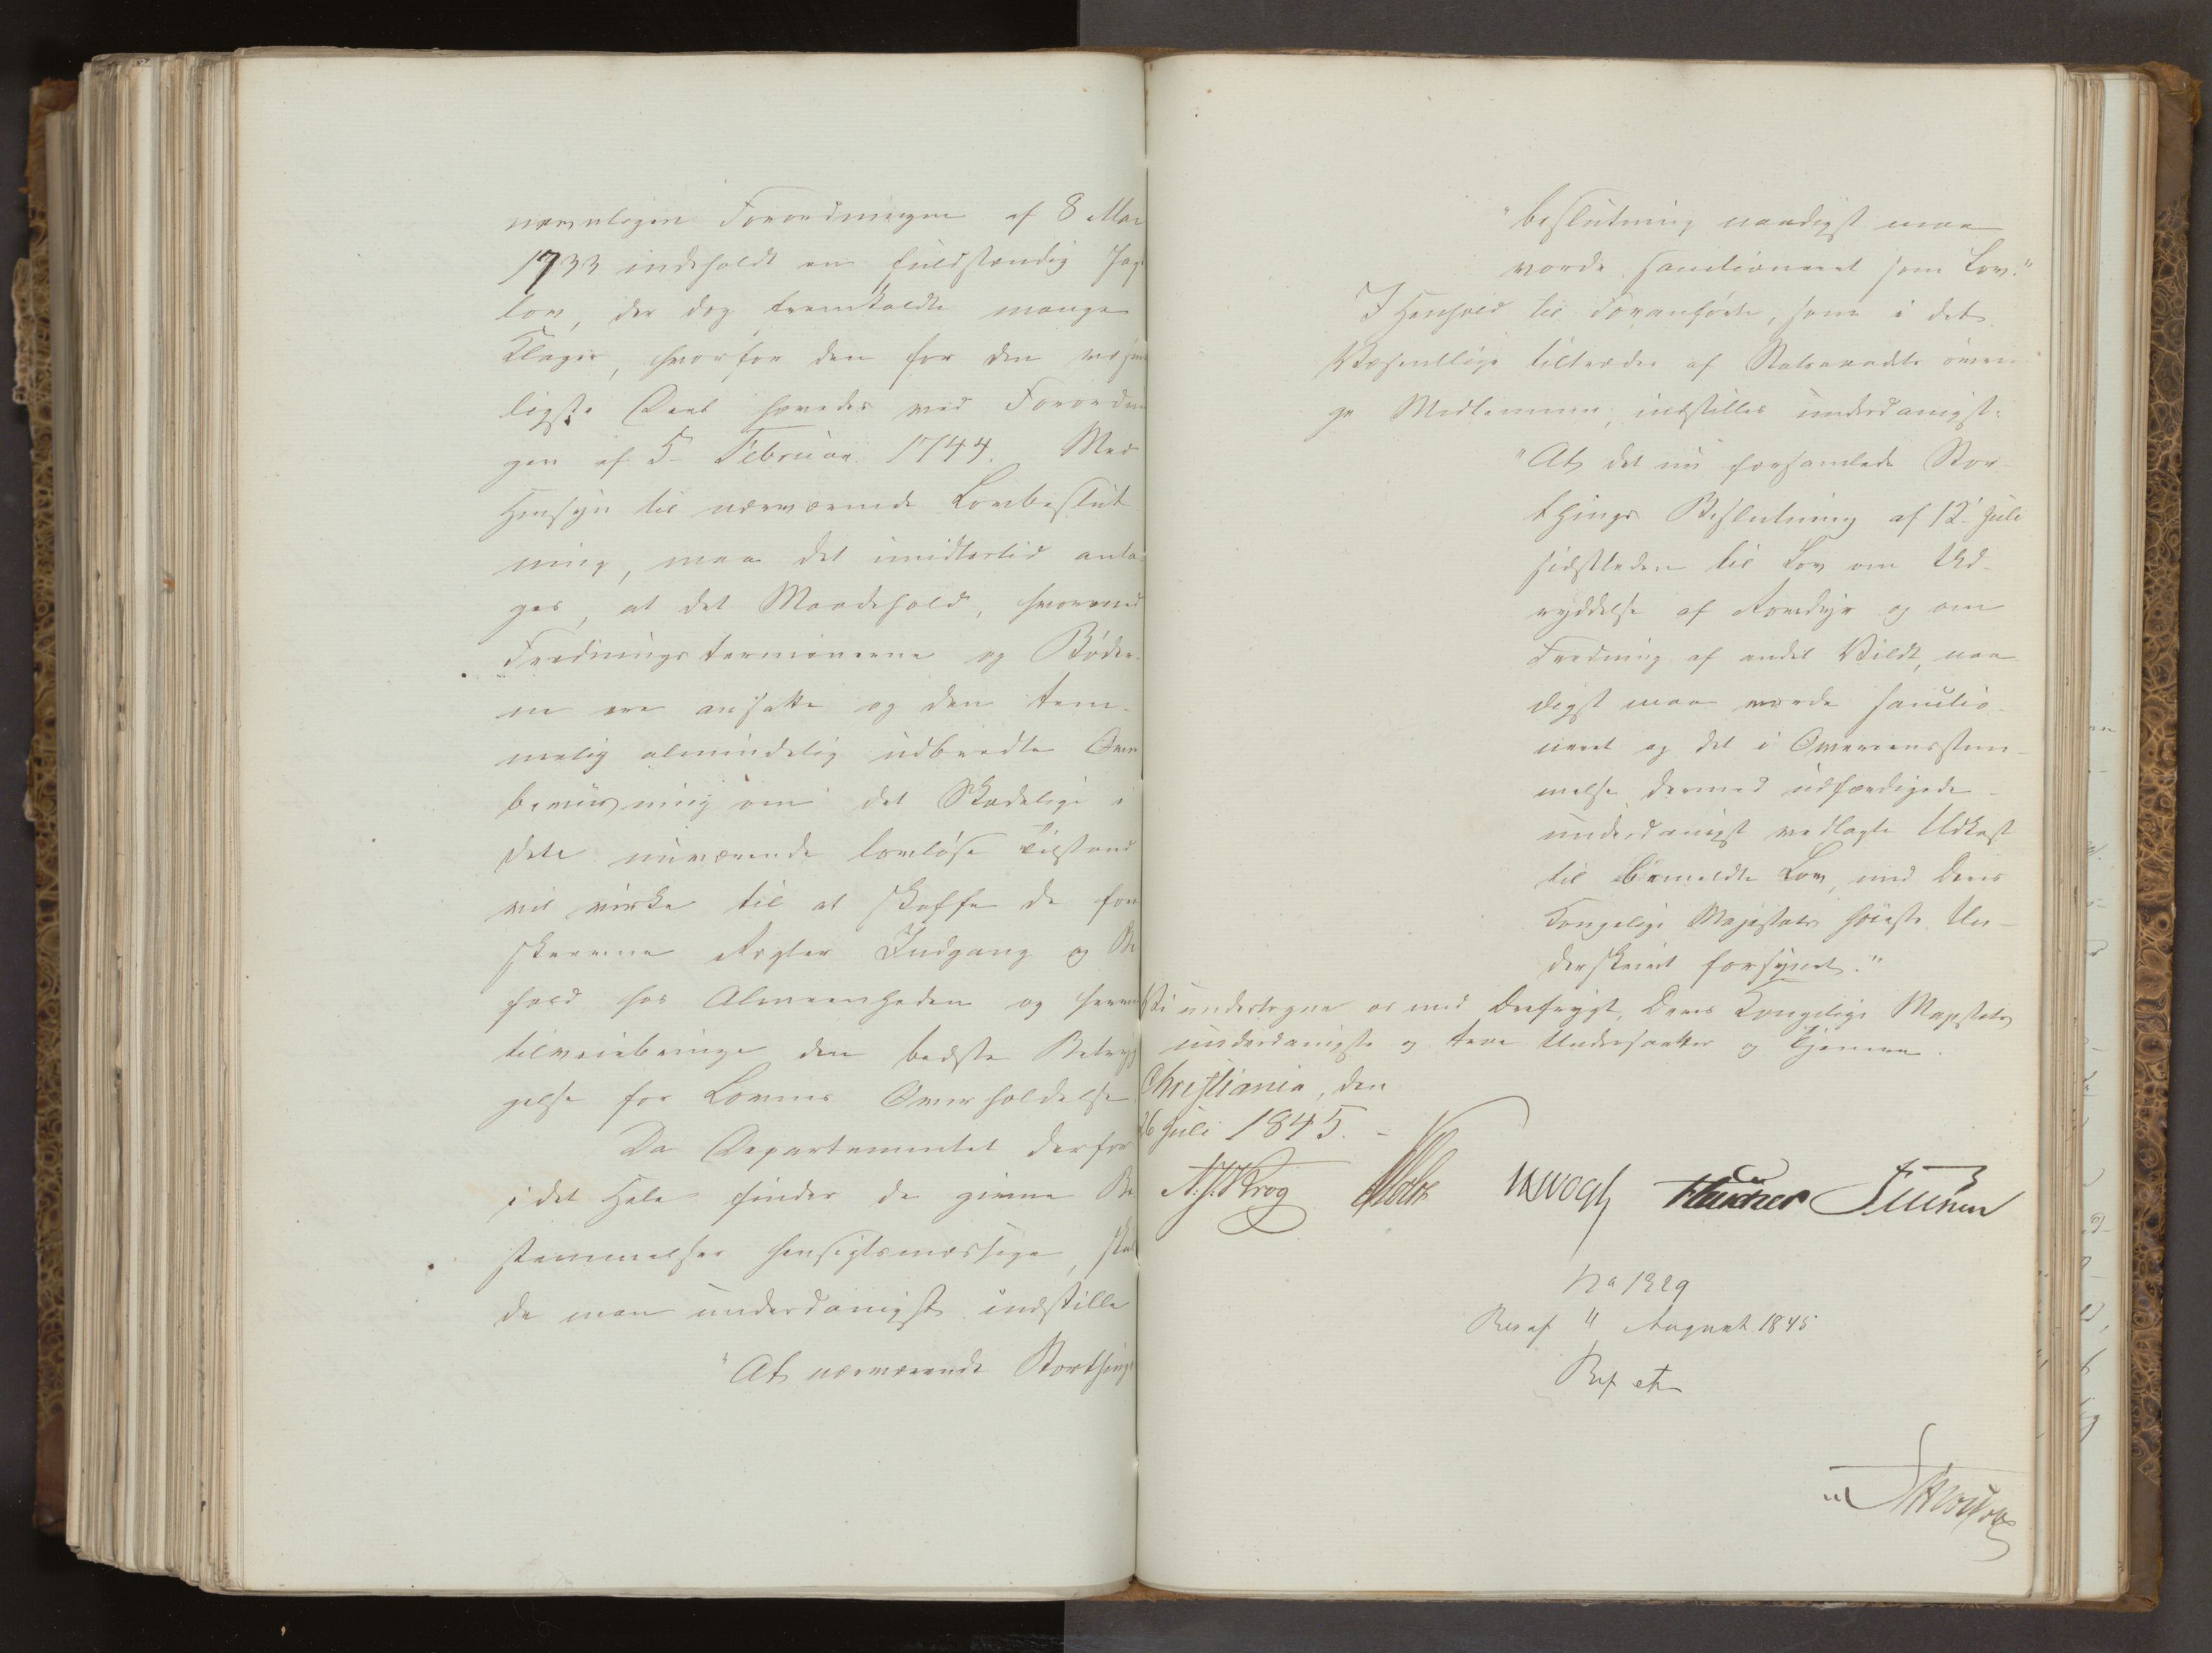 navnligen Forordningen af 8 Mar
1733 indeholdt en fuldstændig Jagt
lov, der dog fremkaldte mange
Klager, hvorfor den for den væsent
ligste Deel hævedes ved Forordnin
gen af 5 Februar 1744. Med
Hensyn til nærværende Lovbeslut
ning, maa det imidlertid anta
ges, at det Maadehold, hvormed
Fredningsterminerne og Bøder
ne ere ansatte og den tem-
melig almindelig udbredte Over
beviisning om det Skadelige i
dette nuværende lovløse Tilstand
vil virke til at skaffe de for
skrevne Regler Indgang og Be
hold hos Almeenheden og herved
tilveiebringe den bedste Betryg
gelse for Lovens Overholdelse.
Da Departementet derfor
i det Hele finder de givne Be
stemmelser hensigtsmæssige, skul
de man underdanigst indstille
"At nærværende Storthings
"beslutning naadigst maa
vorde sanctioneret som Lov."
I Henhold til Foranførte, som i det
Væsentlige tiltrædes af Statsraadets øvri
ge Medlemmer, indstilles underdanigst:
"At det nu forsamlede Stor-
things Beslutning af 12 Juli
sidstleden til Lov om Ud-
ryddelse af Rovdyr og om
Fredning af andet Vildt, naa
digst maa vorde sanctio-
neret og det i Overeensstem-
melse dermed udfærdigede
underdanigst vedlagte Udkast
til bemeldte Lov, med Deres
Kongelige Majestæts høieste Un-
derskrivt forsynet."
Vi undertegne os med Ærefrygt, Deres Kongelige Majestæts
underdanigste og troe Undersaatter og Tjenere.
Christiania, den
26 Juli 1845.
N. J. Krog Vogt
No 1329
Res af 4 August 1845